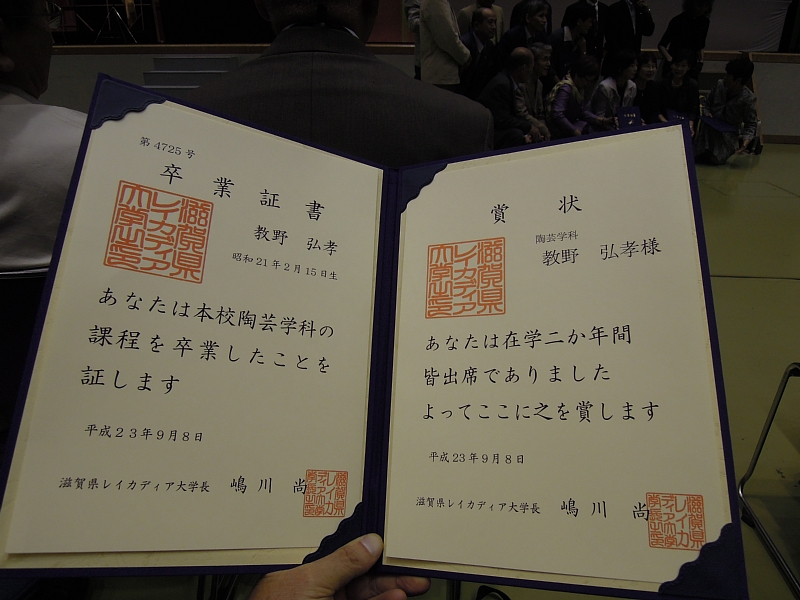 第4725号
卒業証書
滋賀県
レイカディア
大学之印
教野 弘孝
昭和21年2月15日生
あなたは本校陶芸学科の
課程を卒業したことを
証します
平成23年9月8日
滋賀県レイカディア大学長 嶋川 尚
滋賀県
レイカ
ディア大学
学長之印
賞状
滋賀県
レイカディア
大学之印
陶芸学科
教野 弘孝様
あなたは在学二か年間
皆出席でありました
よってここに之を賞します
平成23年9月8日
滋賀県レイカディア大学長 嶋川 尚
滋賀県
レイカ
ディア大学
学長之印